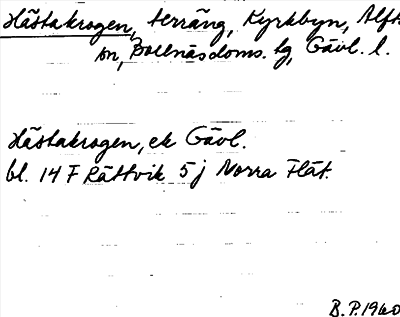 Hästakrogen, terräng, Kyrkbyn, Alft
sn, Bollnäs doms. tg, Gävl. l.
Hästakrogen, ek Gävl.
bl. 14 F Rättvik 5 j Norra Flät.
B.P. 1960